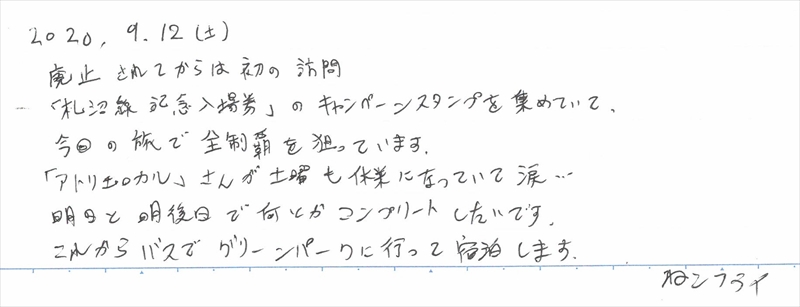 2020, 9.12(土)
廃止されてからは初の訪問
「札沼線記念入場券」のキャンペーンスタンプを集めていて、
今回の旅で全制覇を狙っています。
「アトリエロカル」さんが土曜も休業になっていて涙…
明日と明後日で何とかコンプリートしたいです。
これからバスでグリーンパークに行って宿泊します。
ネコフライ